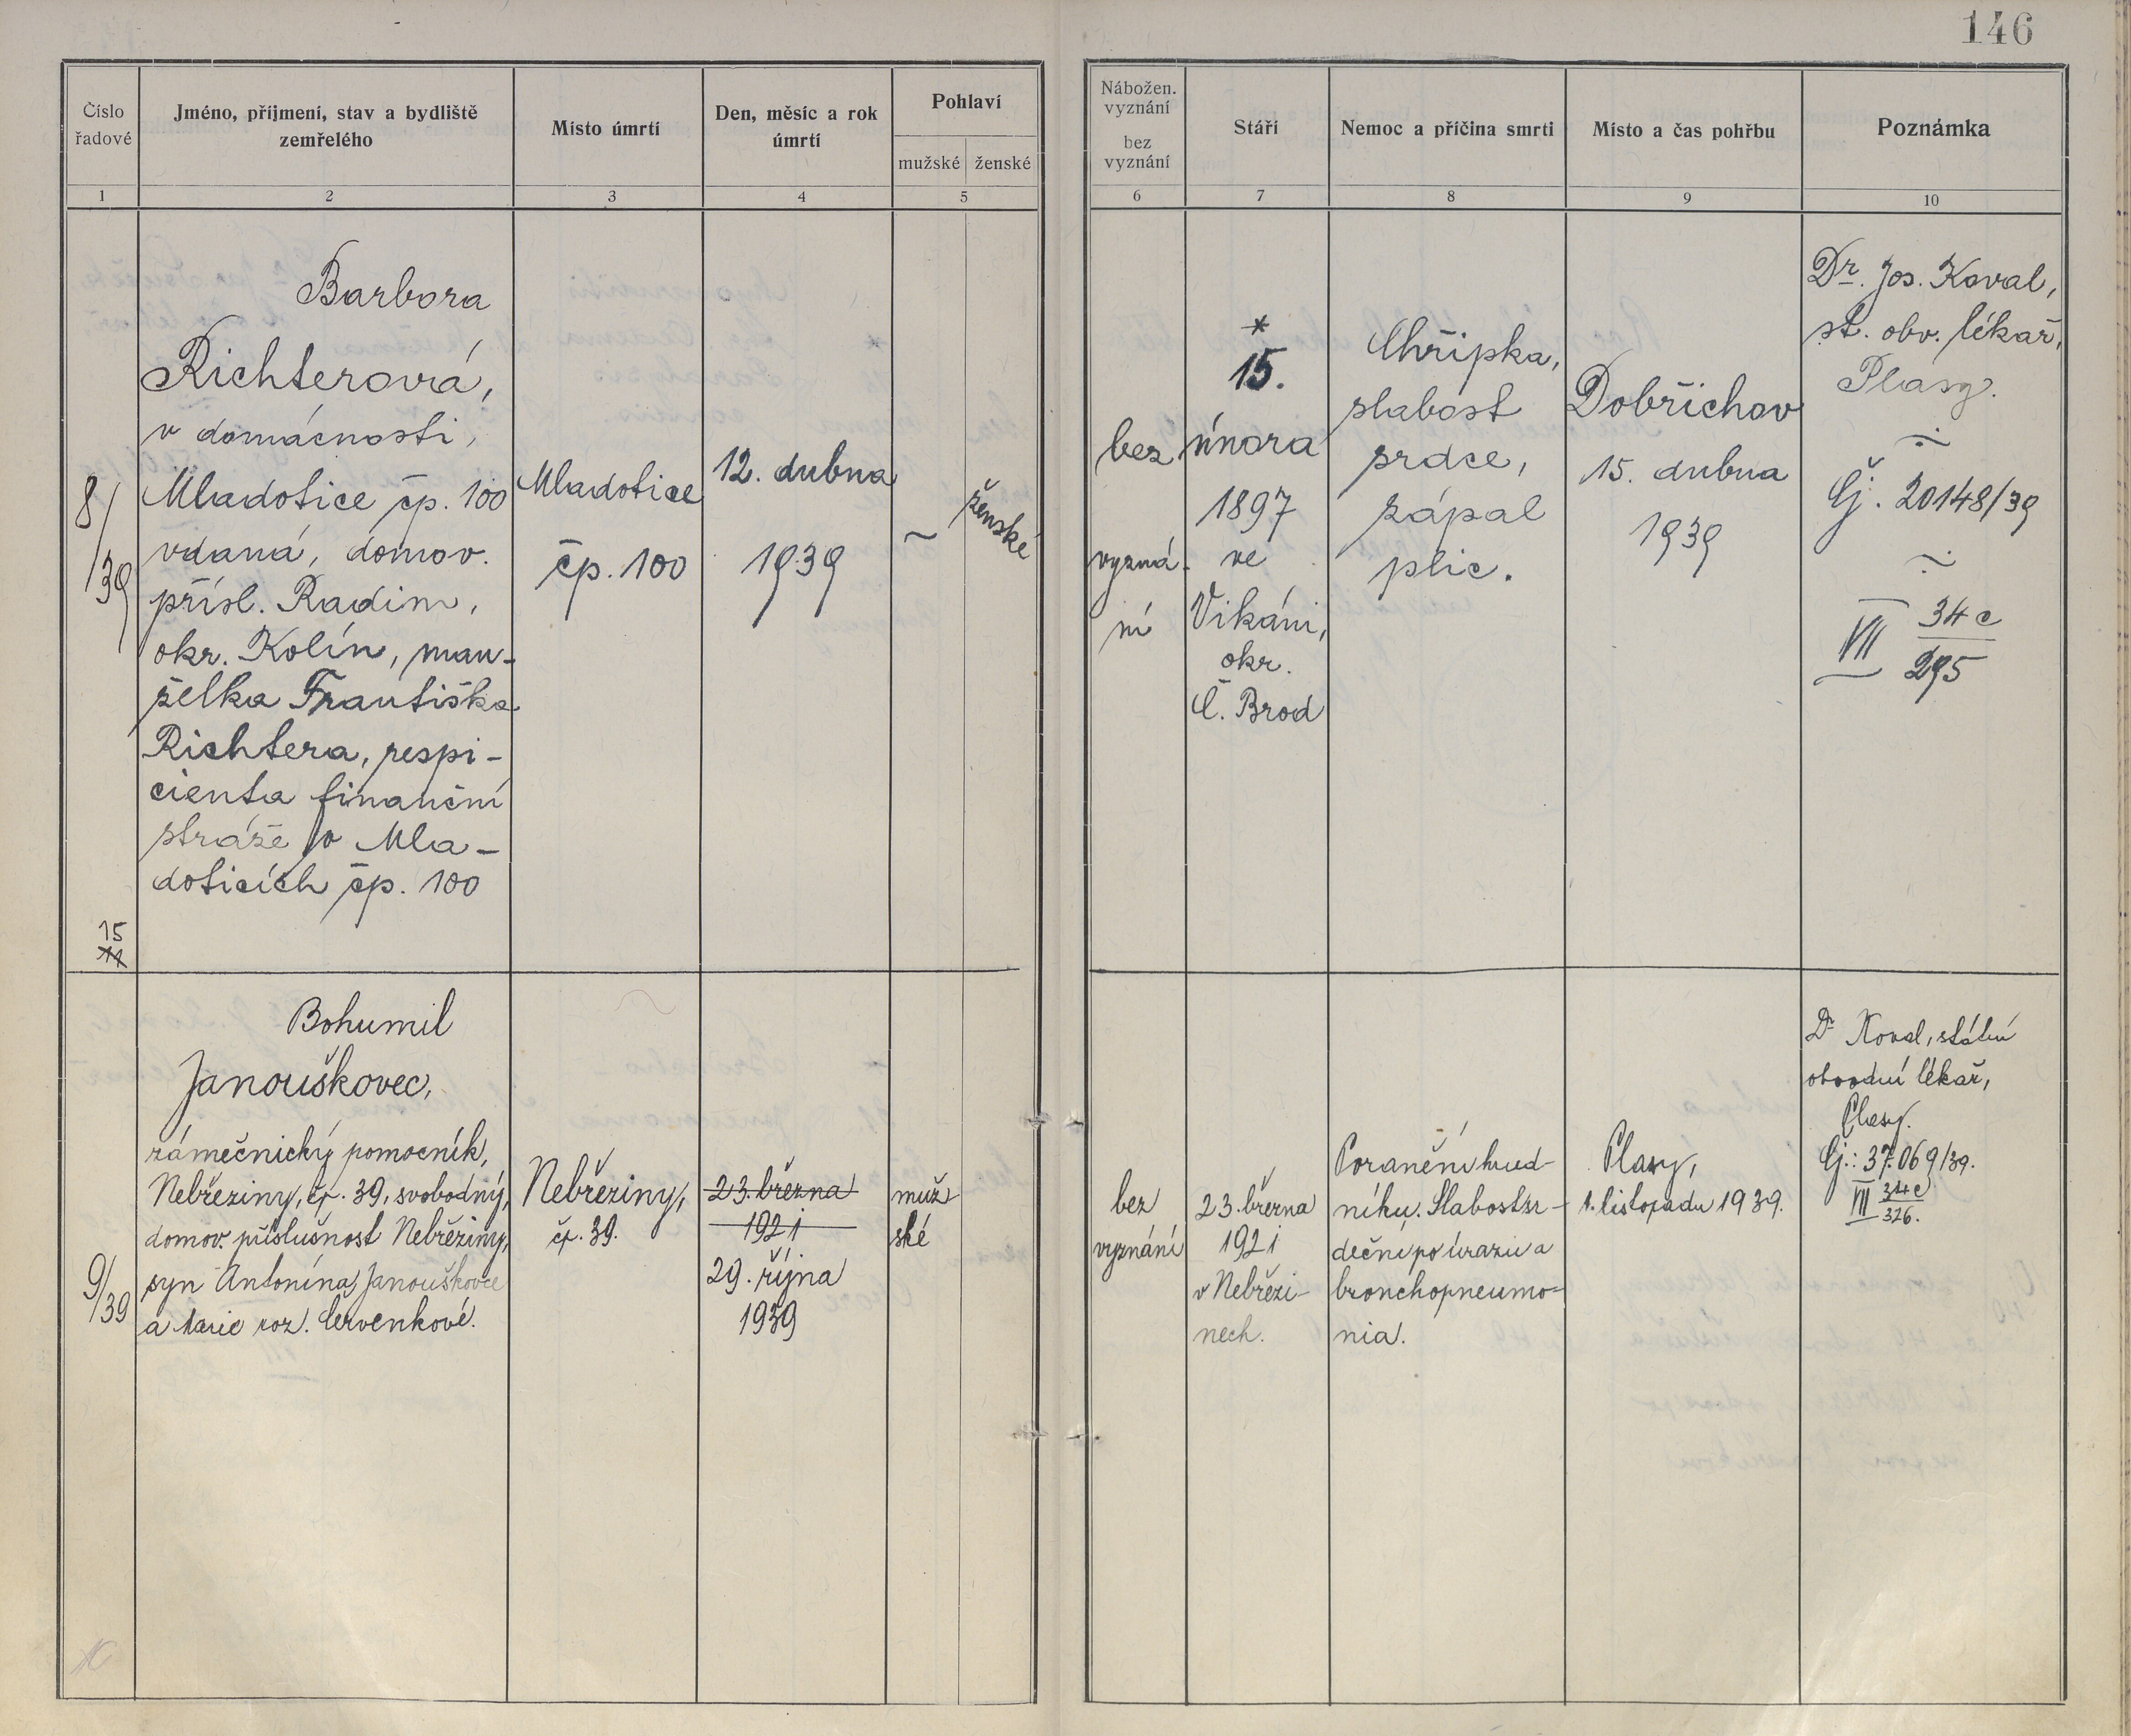 146
Číslo
řadové
Jméno, příjmení, stav a bydliště
zemřelého
Místo úmrtí
Den, měsíc a rok
úmrtí
Pohlaví
mužské ženské
Nábožen.
vyznání
bez
vyznání
Stáří
Nemoc a příčina smrti
Místo a čas pohřbu
Poznámka
1 2 3 4 5 6 7 8 9 10
8/
/39
Barbora
Richterová,
v domácnosti,
Mladotice čp. 100
vdaná, domov.
přísl. Radim,
okr. Kolín, man-
želka Františka
Richtera, respi-
cienta finanční
stráže v Mla-
doticích čp. 100
Mladotice
čp. 100
12. dubna
1939
~
ženské
bez
vyzná-
ní
*
15.
února
1897
ve
Vikáni,
okr.
Č. Brod
Chřipka,
slabost
srdce,
zápal
plic.
Dobřichov
15. dubna
1939
Dr. Jos. Koval,
st. obv. lékař,
Plasy.
Čj. 20148/39
VII 34c
295
15
9/39
Bohumil
Janouškovec,
zámečnický pomocník,
Nebřeziny, čp. 39, svobodný,
domov. příslušnost Nebřeziny,
syn Antonína Janouškovce
a Marie roz. Červenkové.
Nebřeziny,
čp. 39.
23. března
1921
29. října
1939
muž
ské
bez
vyznání
23. března
1921
v Nebřezi-
nech.
Poranění hrud-
níku. Slabost sr-
deční po úrazu a
bronchopneumo=
nia.
Plasy,
1. listopadu 1939.
Dr Koval, státní
obvodní lékař,
Plasy.
Čj.: 37.069/39.
VII 34c
326.